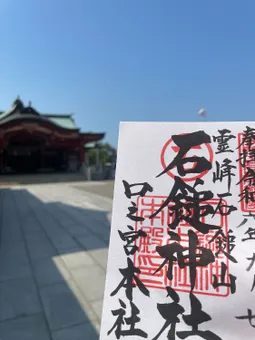 奉拝 令和六年九月 七
霊峰石鎚山
石鎚神社
口之宮本社